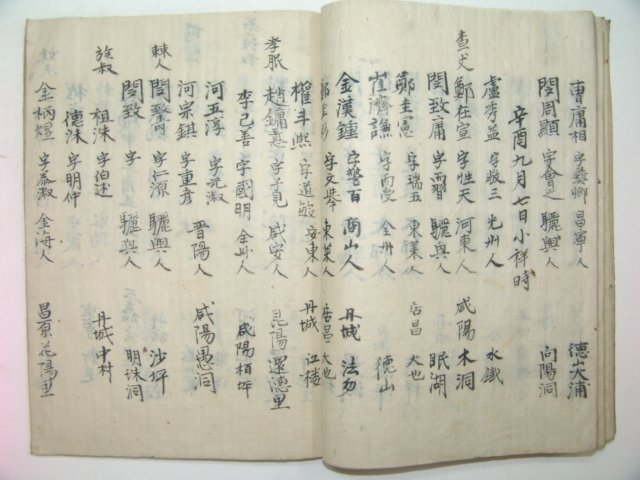 曺庸相 字彜卿 昌寧人 德山大浦
閔周顯 字會之 驪興人 向陽洞
辛酉九月七日小祥時
盧秀益 字敬三 光州人 水鐵
査丈 鄭在宣 字性天 河東人 咸陽木洞
閔致庸 字而習 驪興人 眠湖
鄭圭憲 字瑞五 東萊人 居昌大也
崔濟謙 字而受 全州人 德山
金漢鍾 字聲百 商山人 丹城法勿
字文 東萊人 居昌大也
權斗熙 字道敏 安東人 丹城江樓
孝服 趙鏞 字子見 咸安人 昆陽還德里
李己善 字國明 全州人 咸陽栢坪
河五淳 字元淑 晋陽人 咸陽愚洞
河宗鎮 字重彦
棘人 閔致 字仁源 驪興人 沙坪
閔致 字 驪興人 明洙洞
族叔 祖洙 字伯述 丹城中村
德洙 字明仲
金柄煌 字泰叔 金海人 昌原花陽里